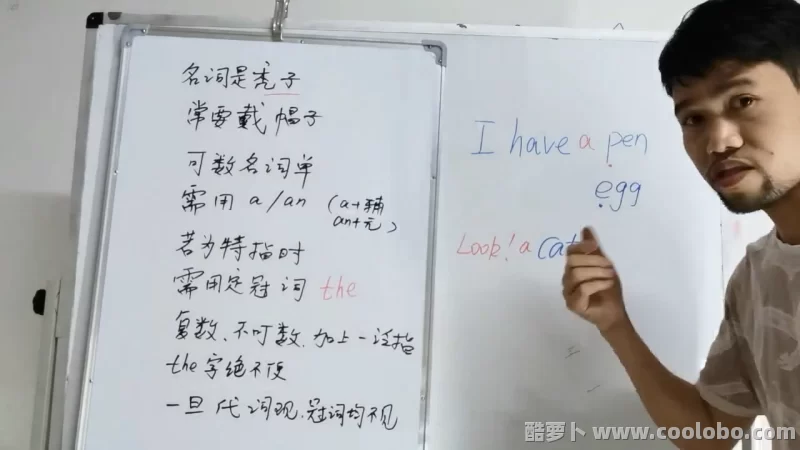 名词是秃子
常要戴帽子
可数名词单
需用 a/an (a+辅
an+元)
若为特指时
需用定冠词 the
复数、不可数,加上一泛指
the字绝不使
一旦代词现,冠词均不见
I have a pen
egg
Look! a cat
酷萝卜 www.coolobo.com